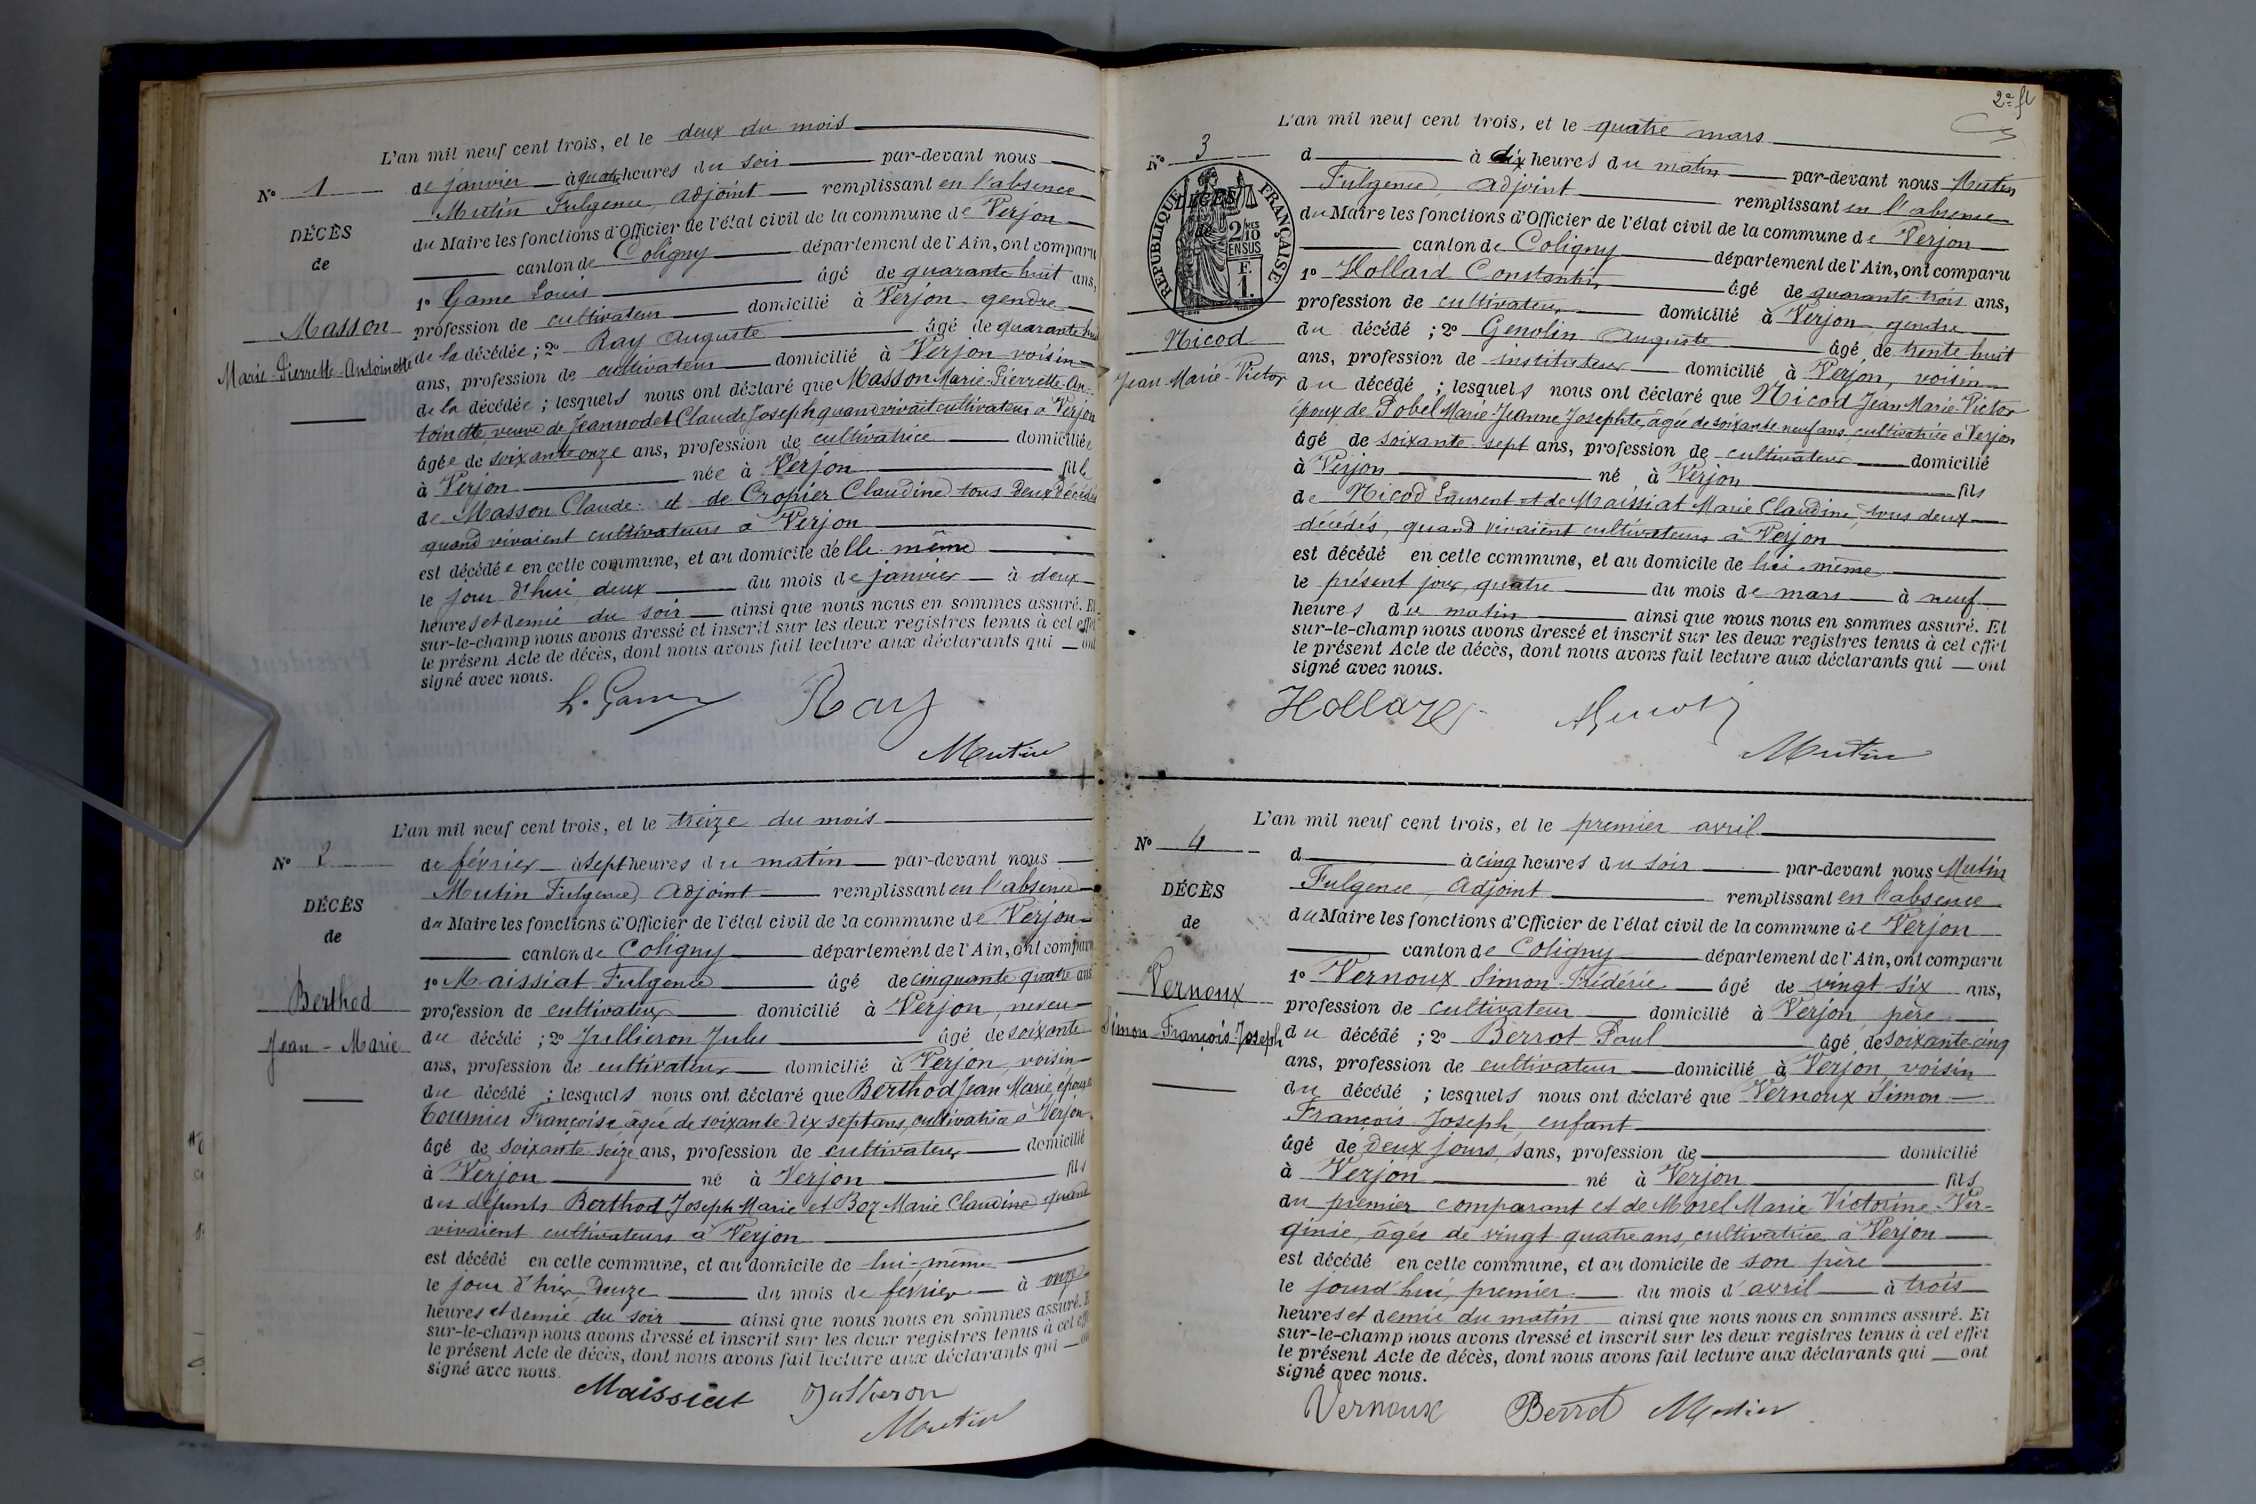 L'an mil neuf cent trois, et le deux du mois
N° 1
de janvier à quatre heures du soir par-devant nous
Mutin Fulgence, adjoint remplissant en l'absence
DÉCÈS
du Maire les fonctions d'Officier de l'état civil de la commune de Verjon
de
canton de Coligny département de l'Ain, ont comparu
1° Game Louis âgé de quarante huit ans,
Masson
profession de cultivateur domicilié à Verjon gendre
Marie-Pierrette-Antoinette
de la décédée ; 2° Ray Auguste âgé de quarante huit
ans, profession de cultivateur domicilié à Verjon voisin
de la décédée ; lesquels nous ont déclaré que Masson Marie-Pierrette-An-
toinette, veuve de Jeannodet Claude Joseph quand vivait cultivateur à Verjon
âgée de soixante onze ans, profession de cultivatrice domiciliée
à Verjon née à Verjon fille
de Masson Claude et de Cropier Claudine tous deux décédés
quand vivaient cultivateurs à Verjon
est décédée en cette commune, et au domicile d'elle même
le jour d'hui deux du mois de janvier à deux
heures et demie du soir ainsi que nous nous en sommes assuré. Et
sur-le-champ nous avons dressé et inscrit sur les deux registres tenus à cet effet
le présent Acte de décès, dont nous avons fait lecture aux déclarants qui ont
signé avec nous.
L. Game Ray
Mutin
L'an mil neuf cent trois, et le treize du mois
N° 2
de février à sept heures du matin par-devant nous
Mutin Fulgence, adjoint remplissant en l'absence
DÉCÈS
du Maire les fonctions d'Officier de l'état civil de la commune de Verjon
de
canton de Coligny département de l'Ain, ont comparu
1° Maissiat Fulgence âgé de cinquante quatre ans
Berthod
profession de cultivateur domicilié à Verjon, neveu
Jean-Marie
du décédé ; 2° Jullieron Jules âgé de soixante
ans, profession de cultivateur domicilié à Verjon, voisin
du décédé ; lesquels nous ont déclaré que Berthod Jean Marie, époux de
Tournier Françoise âgée de soixante-dix sept ans, cultivatrice à Verjon,
âgé de soixante seize ans, profession de cultivateur domicilié
à Verjon né à Verjon fils
des défunts Berthod Joseph Marie et Boz Marie Claudine quand
vivaient cultivateurs à Verjon
est décédé en cette commune, et au domicile de lui-même
le jour d'hier, douze du mois de février à onze
heures et demie du soir ainsi que nous nous en sommes assuré. Et
sur-le-champ nous avons dressé et inscrit sur les deux registres tenus à cet effet
le présent Acte de décès, dont nous avons fait lecture aux déclarants qui ont
signé avec nous.
Maissiat Jullieron
Mutin
2e ft
L'an mil neuf cent trois, et le quatre mars
N° 3
d à dix heures du matin par-devant nous Mutin
Fulgence, adjoint remplissant en l'absence
RÉPUBLIQUE FRANÇAISE
DÉCÈS
2/10 EN SUS
F. 1.
du Maire les fonctions d'Officier de l'état civil de la commune de Verjon
canton de Coligny département de l'Ain, ont comparu
1° Hollard Constantin, âgé de quarante-trois ans,
profession de cultivateur, domicilié à Verjon, gendre
Nicod
du décédé ; 2° Genolin Auguste âgé de trente huit
Jean-Marie-Victor
ans, profession de instituteur domicilié à Verjon, voisin
du décédé ; lesquels nous ont déclaré que Nicod Jean-Marie-Victor
époux de Pobel Marie-Jeanne Josephte, âgée de soixante neuf ans, cultivatrice à Verjon
âgé de soixante-sept ans, profession de cultivateur domicilié
à Verjon né à Verjon fils
de Nicod Laurent et de Maissiat Marie Claudine, tous deux
décédés, quand vivaient cultivateurs à Verjon
est décédé en cette commune, et au domicile de lui-même
le présent jour, quatre du mois de mars à neuf
heures du matin ainsi que nous nous en sommes assuré. Et
sur-le-champ nous avons dressé et inscrit sur les deux registres tenus à cet effet
le présent Acte de décès, dont nous avons fait lecture aux déclarants qui ont
signé avec nous.
Hollard
Mutin
L'an mil neuf cent trois, et le premier avril
N° 4
d à cinq heures du soir par-devant nous Mutin
Fulgence, adjoint remplissant en l'absence
DÉCÈS
du Maire les fonctions d'Officier de l'état civil de la commune de Verjon
de
canton de Coligny département de l'Ain, ont comparu
1° Vernoux Simon-Frédéric âgé de vingt six ans,
Vernoux
profession de cultivateur domicilié à Verjon, père
Simon-François-Joseph
du décédé ; 2° Berrot Paul âgé de soixante cinq
ans, profession de cultivateur domicilié à Verjon, voisin
du décédé ; lesquels nous ont déclaré que Vernoux Simon
François Joseph, enfant
âgé de deux jours, sans, profession de domicilié
à Verjon né à Verjon fils
du premier comparant et de Morel Marie Victorine-Vir-
ginie, âgée de vingt quatre ans, cultivatrice à Verjon
est décédé en cette commune, et au domicile de son père
le jourd'hui, premier du mois d'avril à trois
heures et demie du matin ainsi que nous nous en sommes assuré. Et
sur-le-champ nous avons dressé et inscrit sur les deux registres tenus à cet effet
le présent Acte de décès, dont nous avons fait lecture aux déclarants qui ont
signé avec nous.
Vernoux Berrot Mutin